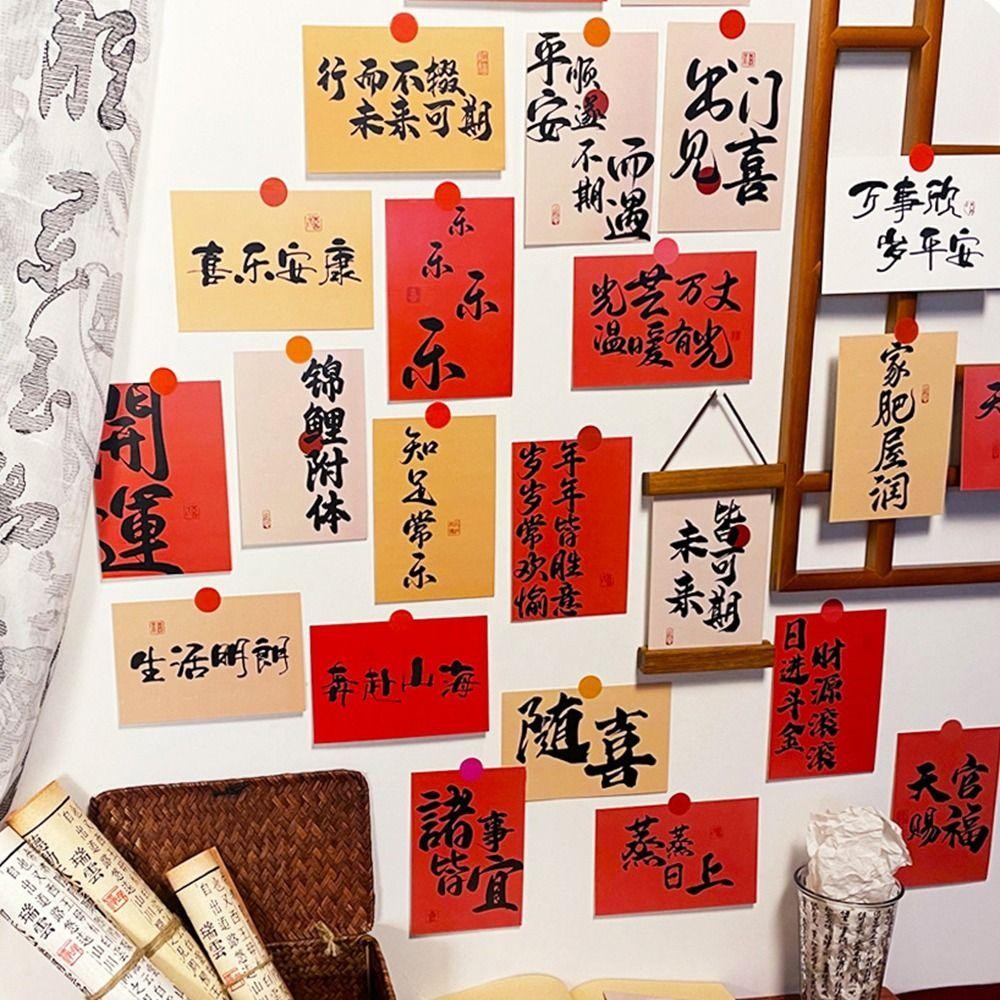 行而不辍
未来可期
平安
顺遂
不期
而遇
出门
见喜
万事欣
岁平安
喜乐安康
乐
乐
乐
乐
光芒万丈
温暖有光
家肥屋润
開
運
锦鲤附体
知足常乐
年年皆胜意
岁岁常欢愉
皆可期
未来
生活明朗
奔赴山海
随喜
财源滚滚
日进斗金
天官
赐福
諸事
皆宜
蒸蒸
日上
瑞雲
瑞雲
瑞雲